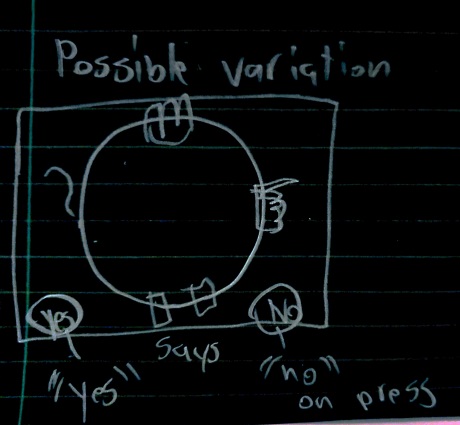 Possible variation
Yes
No
says
"yes"
"no"
on press